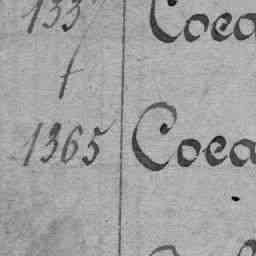 1337 Coca
†
1365 Coca